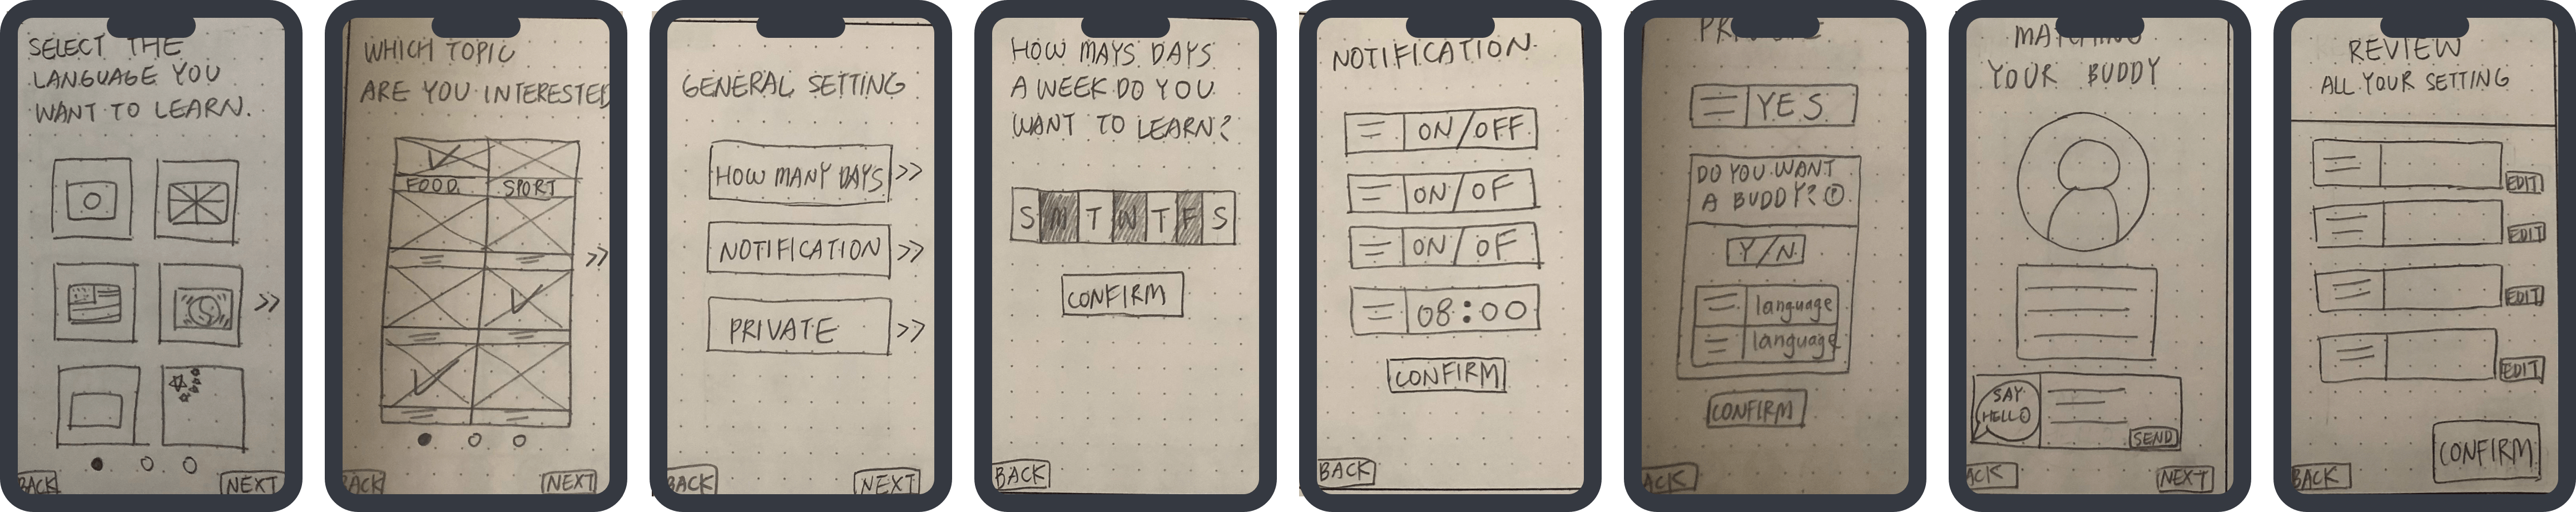 SELECT THE
LANGUAGE YOU
WANT TO LEARN.
>>
BACK
NEXT
WHICH TOPIC
ARE YOU INTERESTED
FOOD
SPORT
>>
BACK
NEXT
GENERAL SETTING
HOW MANY DAYS >>
NOTIFICATION >>
PRIVATE >>
BACK
NEXT
HOW MAYS DAYS
A WEEK DO YOU
WANT TO LEARN?
S M T W T F S
CONFIRM
BACK
NOTIFICATION
ON/OFF
ON/OF
ON/OF
08:00
CONFIRM
BACK
YES
DO YOU WANT
A BUDDY?
Y/N
language
language
CONFIRM
ACK
MATCHING
YOUR BUDDY
SAY
HELLO
SEND
ACK
NEXT
REVIEW
ALL YOUR SETTING
EDIT
EDIT
EDIT
EDIT
CONFIRM
BACK